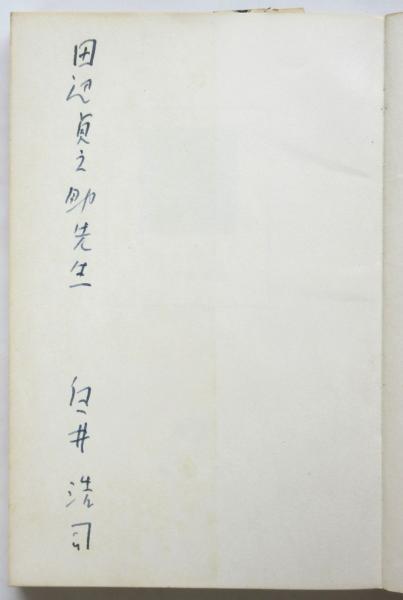 田辺貞之助先生
白井浩司